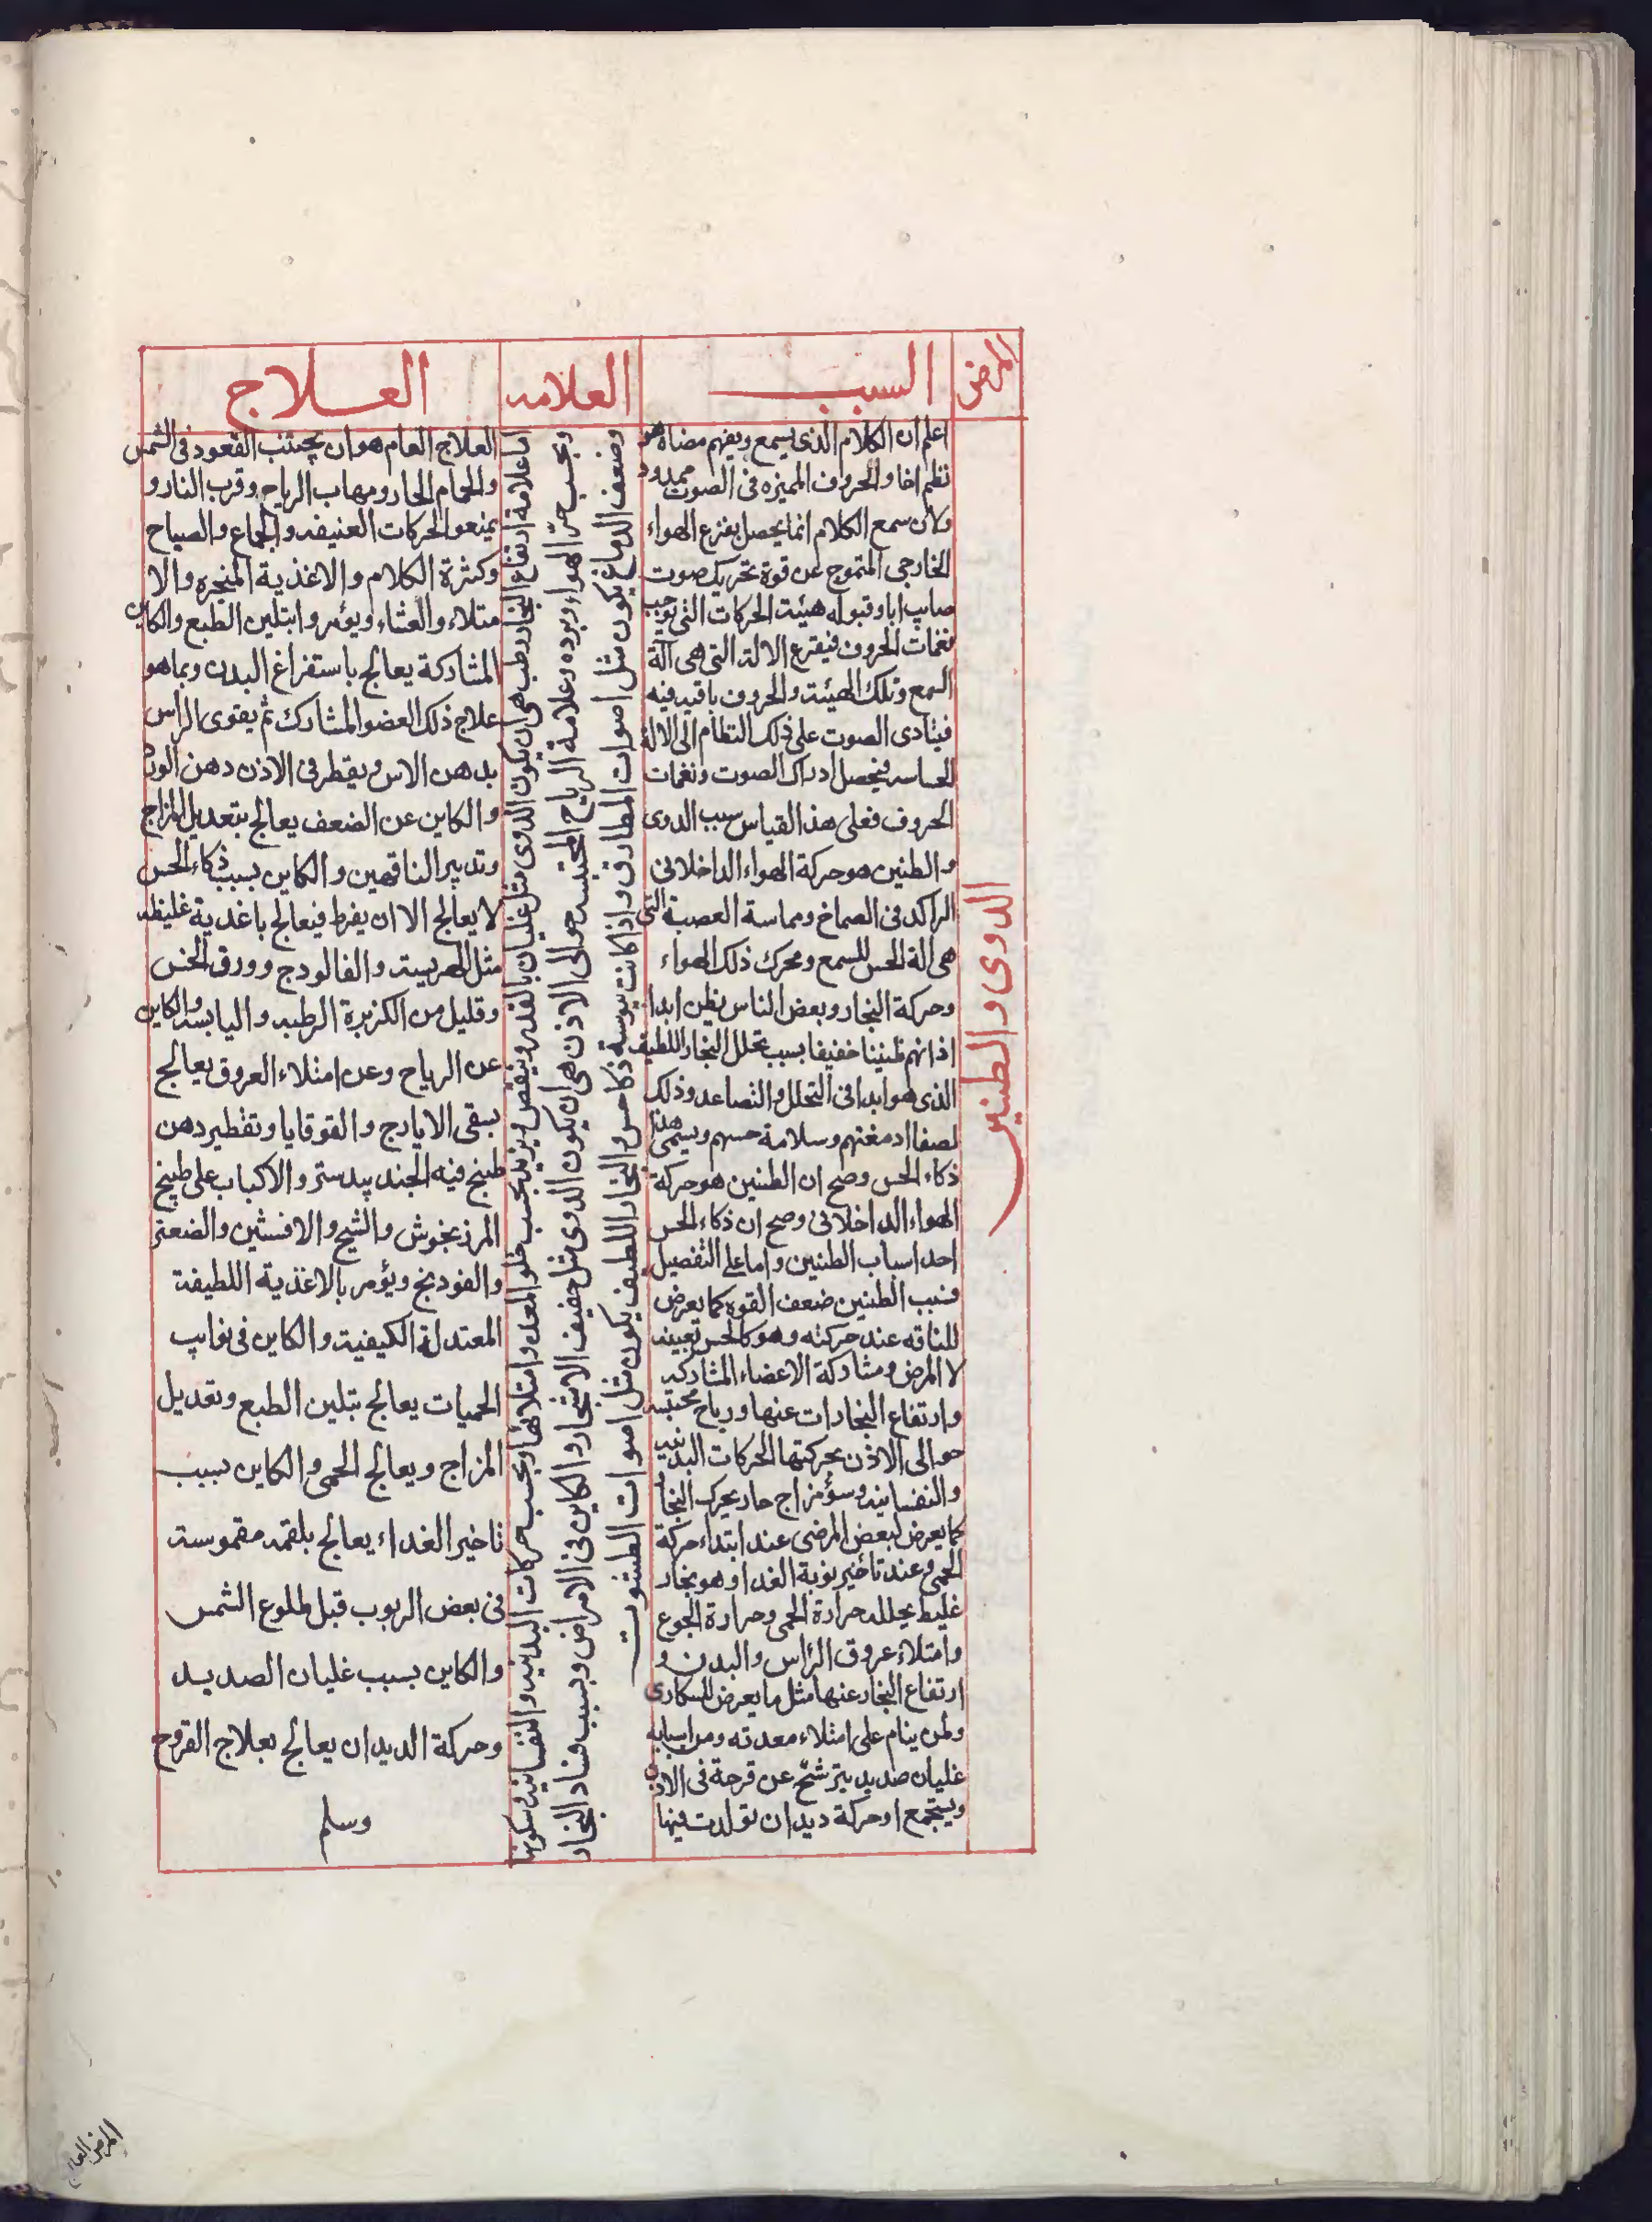 المرض
السبب
العلامه
العلاج
الدوى والطنين
اعلم ان الكلام الذى يسمع ويفهم مضاه هو
نظم اخا والحروف المميزه فى الصوت ممدود
ولان سمع الكلام انما يحصل بقرع الهواء
الخارجى المتموج عن قوة تحريك صوت
صايب اياه وقبوله هيئت الحركات التى توجب
نغمات الحروف فيقرع الالة التى هى آلة
السمع وتلك الهيئت والحروف باقيه فيه
فيتادى الصوت على ذلك النظام الى الالة
الحساسه فيحصل ادراك الصوت ونغمات
الحروف فعلى هذا القياس سبب الدوى
والطنين هو حركة الهواء الداخلانى
الراكد فى الصماخ ومماسة العصبة التى
هى الة الحس للسمع ومحرك ذلك الهواء
وحركة البخار وبعض الناس يظن ابدا
اذانهم طنينا خفيفا بسبب تحلل البخار اللطيف
الذى هو ابدا فى التحلل والتصاعد وذلك
لصفا ادمغتهم وسلامة حسهم ويسمى هذا
ذكاء الحس وصح ان الطنين هو حركة
الهواء الداخلانى وصح ان ذكاء الحس
احد اسباب الطنين واما على التفصيل
فسبب الطنين ضعف القوه كما يعرض
للناقه عند حركته وهو كالحس تعيينه
لا المرض ومشاركة الاعضاء المشاركه
وارتفاع البخارات عنها ورياح محتبسه
حوالى الاذن يحركتها الحركات البدنيه
والنفسانيه وسؤ مزاج حار يحرك البخار
كما يعرض لبعض المرضى عند ابتداء حركة
الحمى وعند تاخير نوبة الغدا وهو بخار
غليط يحلله حرارة الحمى وحرارة الجوع
وامتلاء عروق الرأس والبدن و
ارتفاع البخار عنها مثل ما يعرض للسكارى
ولمن ينام على امتلاء معدته ومن اسبابه
غليان صديد يترشح عن قرحة فى الاذن
ويتجمع او حركة ديدان تولدت فيها
اما علامة ارتفاع البخار رطب هى ان يكون الدوى مثل غليان بالقدر وينقص ويزيد بحسب خلو المعده وامتلائها وبحسب حركات البدنيه والنفسانيه وسكونها
وبحسب حر الهواء وبرده وعلامة الرياح المحتبسه حوالى الاذن هى ان يكون الدوى مثل حفيف الاشجار والكاين فى الامراض وبسبب فساد البخار
وضعف الدماغ يكون مثل اصوات المطارق واذا كانت يبوسة ذكا حس والبخار اللطيف يكون مثل اصوات الطشوت
العلاج العام هو ان يجتنب القعود فى الشمس
والحمام الحار ومهاب الرياح وقرب النار و
يمنعوا الحركات العنيفه والجماع والصياح
وكثرة الكلام والاغذية المبخره والا
متلاء والعشاء ويؤمروا بتلين الطبع والكاين
المشاركة يعالج باستفراغ البدن وبما هو
علاج ذلك العضو المشارك ثم يقوى الراس
بدهن الاس ويقطر فى الاذن دهن الورد
والكاين عن الضعف يعالج بتعديل المزاج
وتدبير الناقهين والكاين بسبب ذكاء الحس
لا يعالج الا ان يفرط فيعالج باغدية غليظه
مثل الهريسة والفالودج وورق الخس
وقليل من الكزبرة الرطبه واليابسه والكاين
عن الرياح وعن امتلاء العروق يعالج
بسقى الايارج والقوقايا وتقطير دهن
طبخ فيه الجند بيدستر والاكباب على طبيخ
المرزنجوش والشيح والافسنتين والضعتر
والفودنج ويؤمر بالاغذية اللطيفة
المعتدلة الكيفية والكاين فى نوايب
الحميات يعالج بتلين الطبع وتعديل
المزاج ويعالج الحمى والكاين بسبب
تاخير الغداء يعالج بلقمه مقموسة
فى بعض الربوب قبل طلوع الشمس
والكاين بسبب غليان الصديد
وحركة الديدان يعالج بعلاج القروح
وسلم
المرض